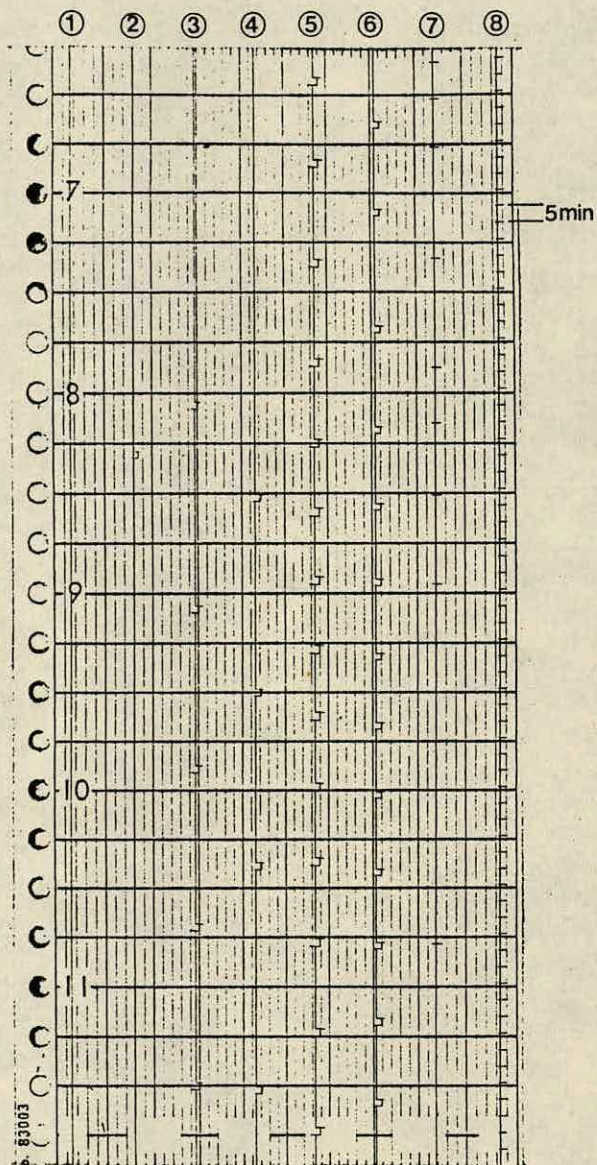 ① ② ③ ④ ⑤ ⑥ ⑦ ⑧
7
5min
8
9
10
11
83003